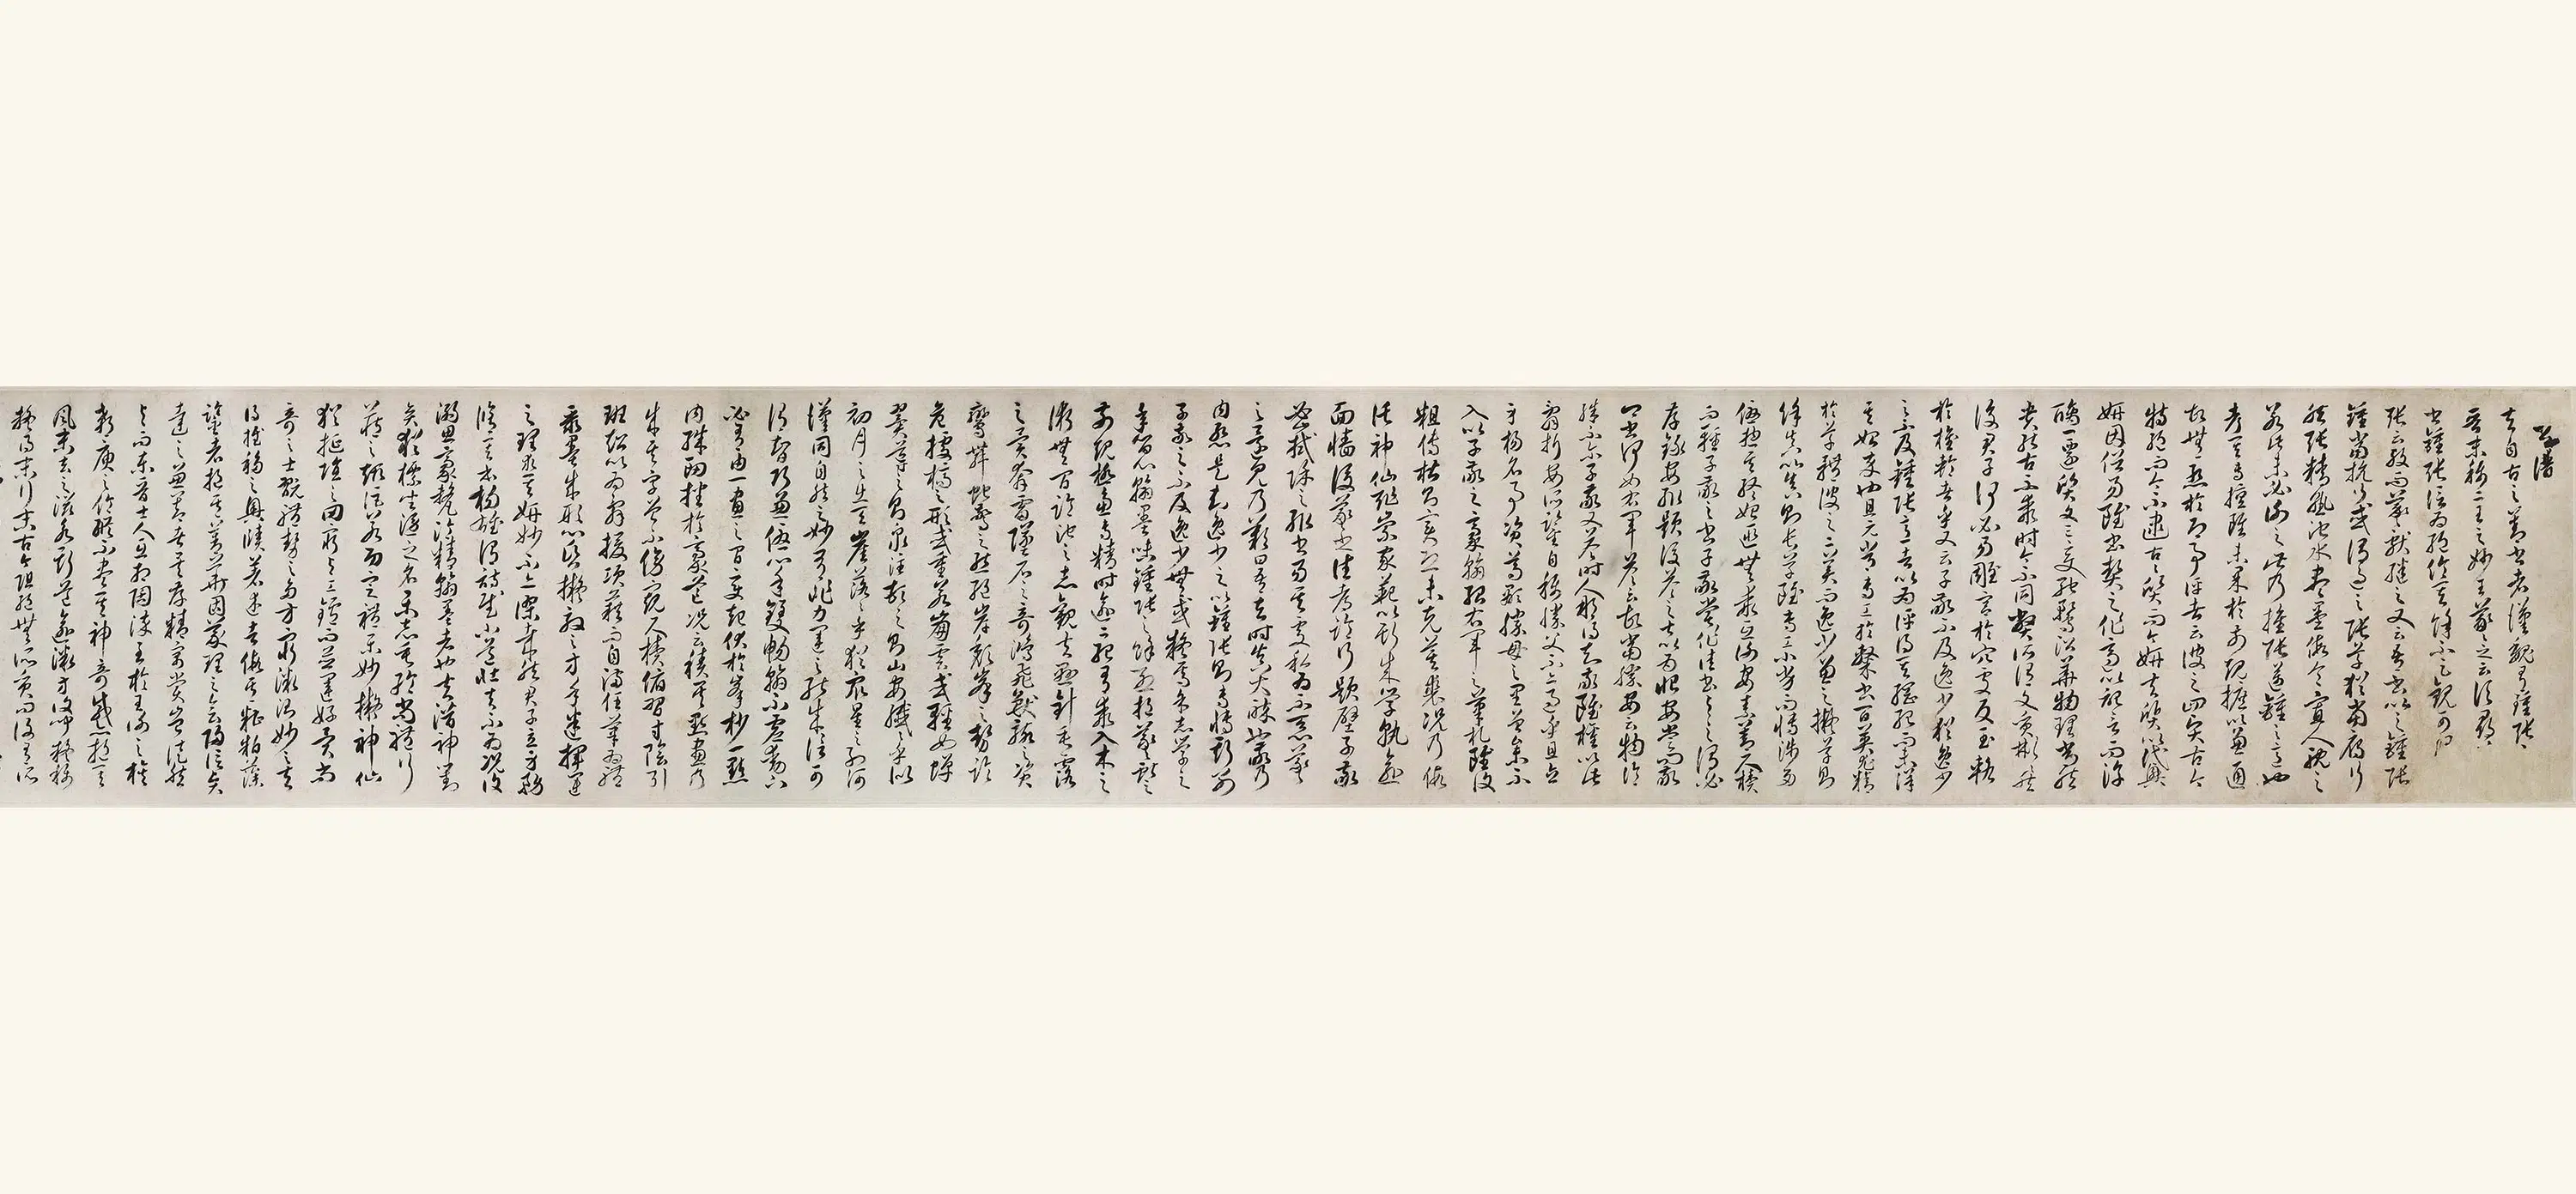 書譜
夫自古之善書者漢魏有鍾張之絕
晉末稱二王之妙王羲之云頃尋諸名
書鍾張信為絕倫其餘不足觀可謂鍾
張云沒而羲獻繼之又云吾書比之鍾張
鍾當抗行或謂過之張草猶當雁行
然張精熟池水盡墨假令寡人耽之
若此未必謝之此乃推張邁鍾之意也
考其專擅雖未果於前規摭以兼通
故無慚於即事評者云彼之四賢古今
特絕而今不逮古古質而今妍夫質以代興
妍因俗易雖書契之作適以記言而淳
醨一遷質文三變馳騖沿革物理常然
貴能古不乖時今不同弊所謂文質彬彬然
後君子何必易雕宮於穴處反玉輅
於椎輪者乎又云子敬之不及逸少猶逸少
之不及鍾張意者以為評得其綱紀而未詳
其始卒也且元常專工於隸書百英尤精
於草體彼之二美而逸少兼之擬草則
餘真比真則長草雖專工小劣而博涉多
優揔其終始匪無乖互謝安素善尺牘
而輕子敬之書子敬嘗作佳書與之謂必
存錄安輒題後答之甚以為恨安嘗問敬
卿書何如右軍答云故當勝安云物論
殊不爾子敬又答時人那得知敬雖權以此
辭折安所鑒自稱勝父不亦過乎且立
身揚名事資尊顯勝母之里曾參不
入以子敬之豪翰紹右軍之筆札雖復
粗傳楷則實恐未克箕裘況乃假
託神仙恥崇家範以斯成學孰愈
面牆後羲之往都臨行題壁子敬
密拭除之輒書易其處私為不惡羲
之還見乃歎曰吾去時真大醉也敬乃
內慚是知逸少之比鍾張則專博斯別
子敬之不及逸少無或疑焉余志學之
年留心翰墨味鍾張之餘烈挹羲獻之
前規極慮專精時逾二紀有乖入木之
術無間臨池之志觀夫懸針垂露
之異奔雷墜石之奇鴻飛獸駭之資
鸞舞蛇驚之態絕岸頹峰之勢臨
危據槁之形或重若崩雲或輕如蟬
翼導之則泉注頓之則山安纖纖乎似
初月之出天崖落落乎猶眾星之列河
漢同自然之妙有非力運之能成信可
謂智巧兼優心手雙暢翰不虛動下
必有由一畫之間變起伏於峰杪一點之
內殊衄挫於豪芒況云積其點畫乃
成其字曾不傍窺尺牘俯習寸陰引
班超以為辭援項籍而自滿任筆為體
聚墨成形心昏擬效之方手迷揮運
之理求其妍妙不亦謬哉然君子立身務
修其本揚雄謂詩賦小道壯夫不為況復
溺思豪釐淪精翰墨者也夫潛神對
奕猶標坐隱之名樂志垂綸尚體行
藏之趣詎若功定禮樂妙擬神仙
猶挻埴之罔窮與工鑪而並運好異尚
奇之士翫體勢之多方窮微測妙之夫
得推移之奧賾著述者假其糟粕藻
鑒者挹其菁華固義理之會歸信賢
達之兼善者矣存精寓賞豈徒然
與而東晉士人互相陶淬至於王謝之族
郗庾之倫縱不盡其神奇咸亦挹其
風味去之滋永斯道愈微方復聞疑稱
疑得末行末古今阻絕無所質問設有所